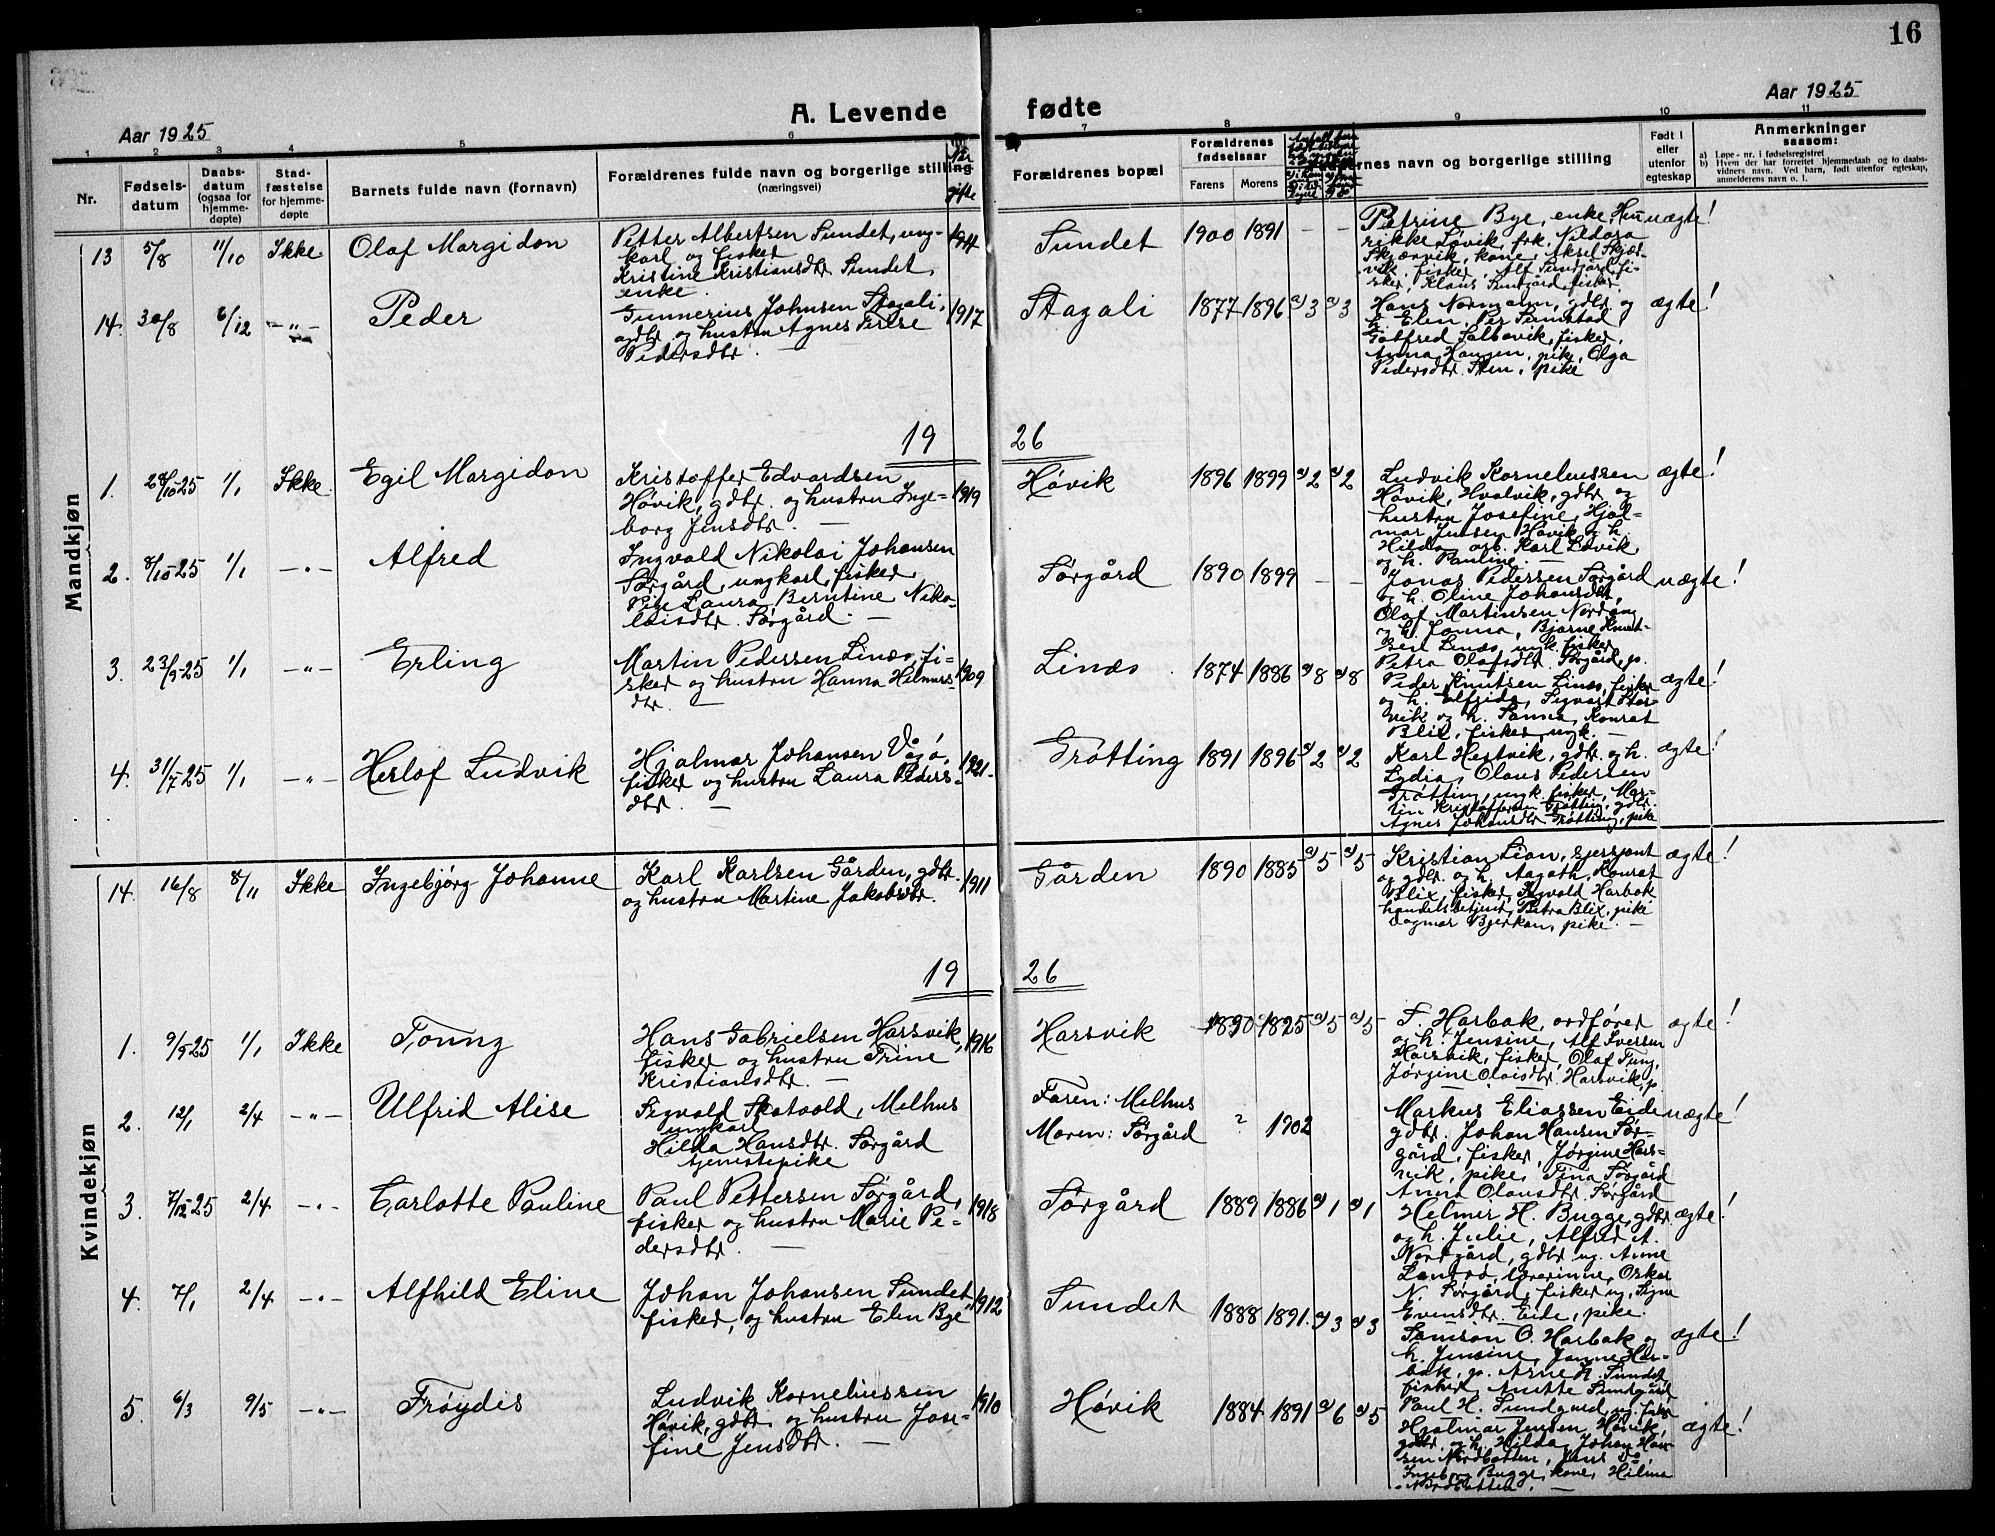 16
Aar 1925
A. Levende
fødte
Aar 1925
1 2 3 4 5 6 7 8 9 10 11
Nr.
Fødsels-
datum
Daabs-
datum
(ogsaa for
hjemme-
døpte)
Stad-
fæstelse
for hjemme-
døpte
Barnets fulde navn (fornavn)
Forældrenes fulde navn og borgerlige stilling
(næringsvei)
gifte
Forældrenes bopæl
Forældrenes
fødselsaar
Farens
Morens
ernes navn og borgerlige stilling
Født i
eller
utenfor
egteskap
Anmerkninger
saasom:
a) Løpe-nr. i fødselsregistret
b) Hvem der har forrettet hjemmedaab og to daabs-
vidners navn. Ved barn, født utenfor egteskap,
anmelderens navn o. l.
Mandkjøn
13 5/8 11/10 Ikke Olaf Margidon
Petter Albertsen Sundet, ung-
karl og fisker
Kristine Kristiansdtr Sundet,
enke.
1914
Sundet 1900 1891 – –
Petrine Bye, enke, Hen-
rikke Løvik, frk. Nildora
Skjærvik, kone, Aksel Skjær-
vik, fisker, Alf Sundgård, fi-
sker, Klaus Sundgård, fisker.
uægte!
14. 30/8 6/12 –"– Peder
Gunnerius Johnsen Stagali,
gdbr. og hustru Agnes
Pedersdtr. –
1917
Stagali 1877 1896 a) 3 a) 3
Hans Normann, gdbr. og
h. Elen, Per Sumstad,
Gotfred Salbovik, fisker,
Anna Hansen, pike, Olga
Pedersdtr. Sten, pike
ægte!
19 26
1. 28/10-25 1/1 Ikke Egil Margidon
Kristoffer Edvardsen
Høvik, gdbr. og hustru Inge-
borg Jensdtr. –
1919
Høvik 1896 1899 a) 2 a) 2
Ludvik Korneliussen
Høvik, Hvalvik, gdbr. og
hustru Josefine, Hjal-
mar Jensen Høvik og h.
Hilda, arb. Karl Løvik
og h. Pauline. –
ægte!
2. 8/10-25 1/1 –"– Alfred
Ingvald Nikolai Johansen
Sørgård, ungkarl, fisker,
Pige Laura Berntine Niko-
laisdtr. Sørgård. –
Sørgård 1890 1899 – –
Jonas Pedersen Sørgård
og h. Oline Johansdtr,
Olaf Martinsen Nordeng
og h. Janna, Bjarne Knut-
sen Linæs, ungk. fisker
Petra Olafsdtr. Sørgård, p.
uægte!
3. 23/9-25 1/1 –"– Erling
Martin Pedersen Linæs, fi-
sker og hustru Hanna Helmers-
dtr. –
1909
Linæs 1874 1886 a) 8 a) 8
Peder Knutsen Linæs, fisker
og h. Elfrida, Sigvart Stør-
vik og h. Sanna, Konrat
Blix, fisker, ungk. –
ægte!
4. 31/7-25 1/1 –"– Herlof Ludvik
Hjalmar Johansen Vågø,
fisker og hustru Laura Peders-
dtr. –
1921.
Grøtting 1891 1896 a) 2 a) 2
Karl Hestvik, gdbr. og h.
Lydia, Olaus Pedersen
Grøtting, ungk. fisker, Mar-
tin Kristoffersen Grøtting, gdbr.
Agnes Johansdtr Grøtting, pike
ægte!
Kvindekjøn
14. 16/8 8/11 Ikke Ingebjørg Johanne
Karl Karlsen Gården, gdbr.
og hustru Martine Jakobsdtr.
1911
Gården 1890 1885 a) 5 a) 5
Kristian Lian, sjersjant
og gdbr. og h. Aagoth, Konrat
Blix, fisker, Ingvald Harbak
handelsbetjent, Petra Blix, pike
Dagmar Bjerkan, pike. –
ægte!
19 26
1. 9/9 25 1/1 Ikke Tounz
Hans Gabrielsen Harsvik,
fisker og hustru Trine
Kristiansdtr. –
1916
Harsvik 1890 1895 a) 5 a) 5
F. Harbak, ordfører
og h. Jensine, Alf Iversen
Harsvik, fisker, Olaf Tung,
Jørgine Olaisdtr. Harsvik, p.
ægte!
2. 12/1 2/4 –"– Ulfrid Alise
Sigvald Skatvold, Melhus
ungkarl
Hilda Hansdtr. Sørgård
tjenestepike
Faren: Melhus
Moren: Sørgård ? 1902
Markus Eliassen Eide
gdbr. Johan Hansen Sør-
gård, fisker, Jørgine Hars-
vik, pike, Tina Sørgård
Anna Olausdtr. Sørgård
uægte!
3. 7/12 25 2/4 –"– Carlotte Pauline
Paul Pettersen Sørgård,
fisker og hustru Marie Pe-
dersdtr. –
1918
Sørgård 1889 1886 a) 1 a) 1
Helmer H. Bugge, gdbr
og h. Julie, Alfred A.
Nordgård, gdbr ug. Anne
Lærerinne, Oskar
N. Sørgård, fisker ug, Signe
Evensdtr. Eide, pike.
ægte!
4. 7/1 2/4 –"– Alfhild Eline
Johan Johansen Sundet
fisker, og hustru Elen Bye
1912
Sundet 1888 1891. a) 3 a) 3
Samson O. Harbak og
h. Jensine, Janne Har-
bak, p. Arne N. Sundet
fisker, Anette Sundgård
ægte!
5. 6/3 9/5 –"– Frøydis
Ludvik Korneliussen
Høvik, gdbr. og hustru Jose-
fine Jensdtr. –
1910
Høvik 1884 1891 a) 6 a) 5
Paul H. Sundgård, ug. fisker
Hjalmar Jensen Høvik,
gdbr. og h. Hilda, Johan Han-
sen Nordbotten, Jens do
Ingeborg Bugge, kone, Hilma
Nordbotten. –
ægte!